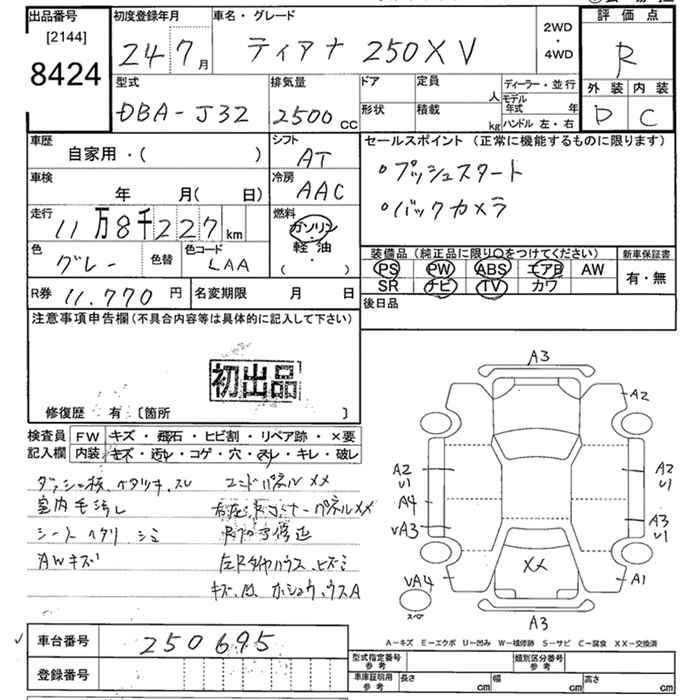 出品番号
[2144]
8424
初度登録年月
24 7 月
車名・グレード
ティアナ 250XV
2WD
・
4WD
評価点
R
外装 内装
D C
型式
DBA-J32
排気量
2500 CC
ドア
形状
定員 人
積載 kg
ディーラー・並行
モデル年式 年
ハンドル 左・右
車歴
自家用・( )
シフト
AT
車検
年 月( 日)
冷房
AAC
走行
11万8千227 km
燃料
ガソリン
・
軽油
( )
色
グレー
色替
色コード
LAA
R券 11,770 円
名変期限 月 日
セールスポイント (正常に機能するものに限ります)
・プッシュスタート
・バックカメラ
装備品(純正品に限り○をつけてください)
PS PW ABS エアB AW
SR ナビ TV カワ
新車保証書
有・無
後日品
注意事項申告欄(不具合内容等は具体的に記入して下さい)
初出品
修復歴 有 [箇所 ]
検査員 FW キズ・飛石・ヒビ割・リペア跡・×要
記入欄 内装 キズ・汚レ・コゲ・穴・スレ・キレ・破レ
コードパネル XX
室内毛汚レ
シート シミ
AWキズ
A3
A2
A2
U1
A4
VA3
A3
U1
XX
VA4
A1
スペア
A3
A-キズ E-エクボ U-凹み W-補修跡 S-サビ C-腐食 XX-交換済
車台番号 250695
登録番号
型式指定番号
参考
類別区分番号
参考
車庫証明用
参考
長さ cm
幅 cm
高さ cm